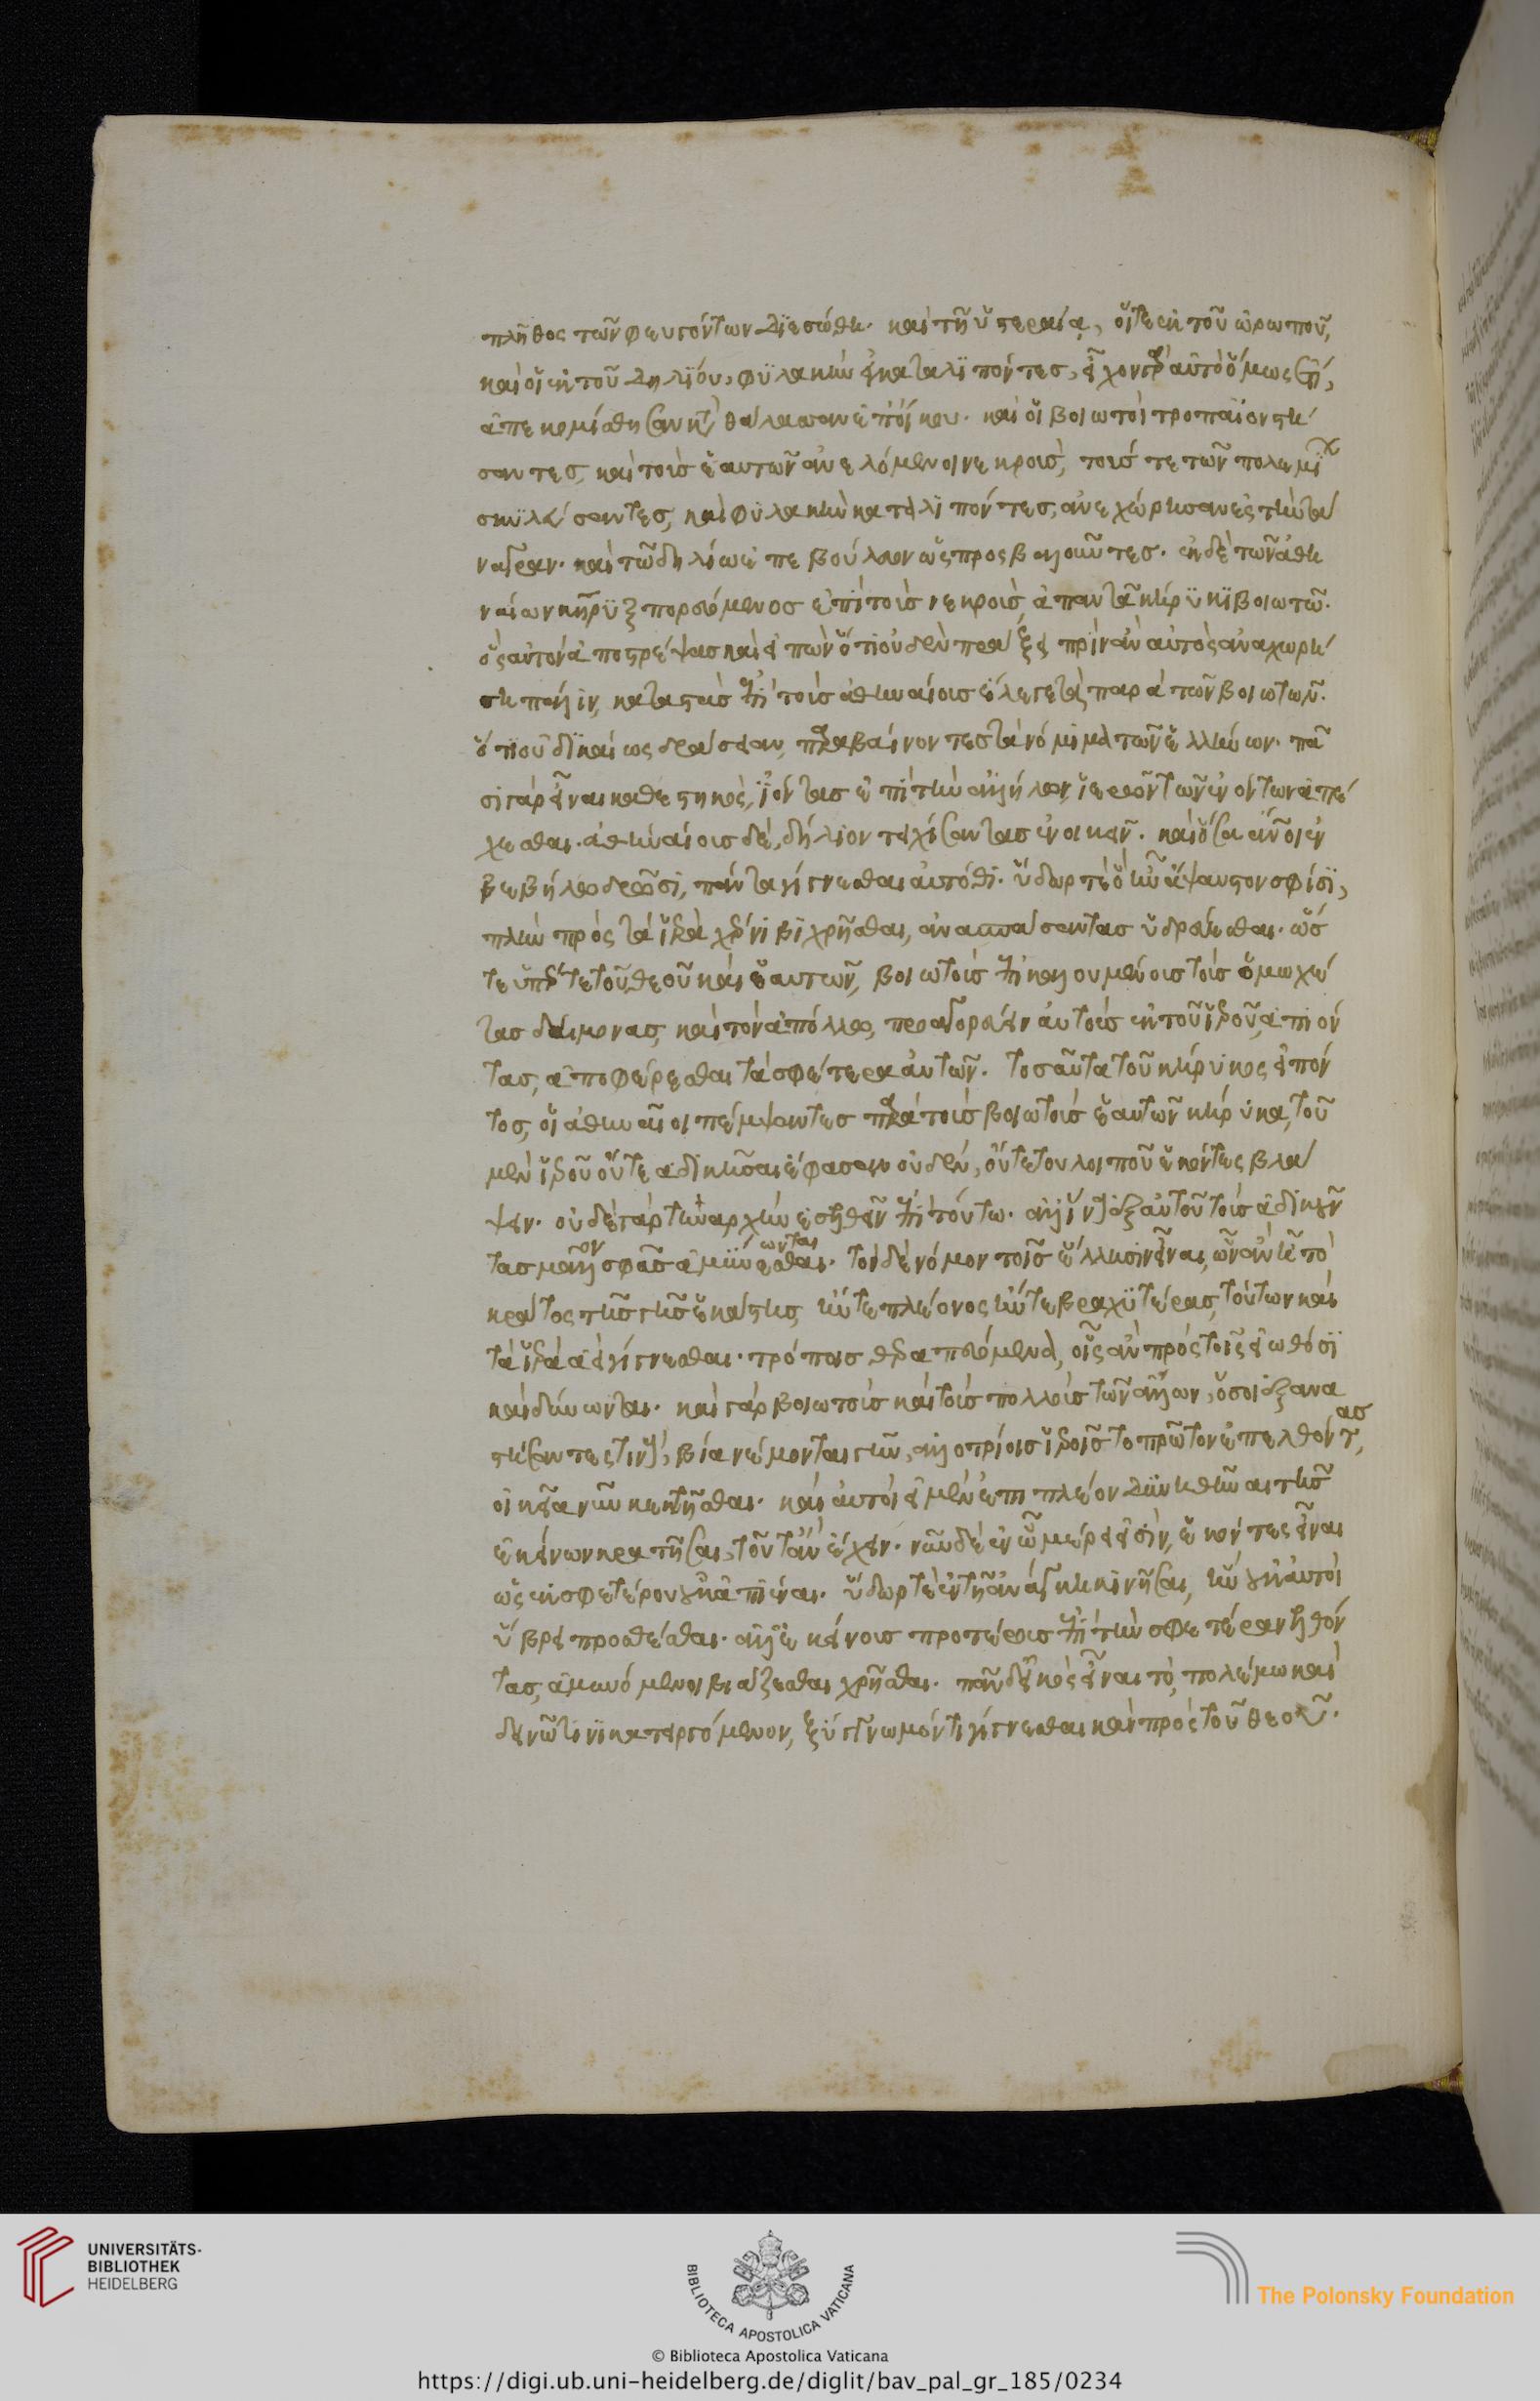 πλῆθος τῶν φευγόντων διεσώθη. καὶ τῇ ὑστεραίᾳ, οἵ τε ἐκ τοῦ ὠρωποῦ,
καὶ οἱ ἐκ τοῦ δηλίου, φυλακὴν ἐγκαταλιπόντες, εἶχον γὰρ αὐτὸ ὅμως ἔτι,
ἀπεκομίσθησαν κατὰ θάλασσαν ἐπ' οἴκου. καὶ οἱ βοιωτοὶ τροπαῖον στή
σαντες, καὶ τοὺς ἑαυτῶν ἀνελόμενοι νεκροὺς, τούς τε τῶν πολεμίων
σκυλεύσαντες, καὶ φυλακὴν καταλιπόντες, ἀνεχώρησαν ἐς τὴν τά
ναγραν. καὶ τῷ δηλίῳ ἐπεβούλευον ὡς προσβαλοῦντες. ἐκ δὲ τῶν ἀθη
ναίων κῆρυξ πορευόμενος ἐπὶ τοὺς νεκροὺς, ἀπαντᾷ κήρυκι βοιωτῷ.
ὃς αὐτὸν ἀποστρέψας καὶ εἰπὼν ὅτι οὐδὲν πράξει πρὶν ἂν αὐτὸς ἀναχωρή
σῃ πάλιν, καταστὰς ἐπὶ τοὺς ἀθηναίους ἔλεγε τὰ παρὰ τῶν βοιωτῶν.
ὅτι οὐ δικαίως δράσειαν, παραβαίνοντες τὰ νόμιμα τῶν ἑλλήνων. πᾶ
σι γὰρ εἶναι καθεστηκὸς, ἰόντας ἐπὶ τὴν ἀλλήλων, ἱερῶν τῶν ἐνόντων ἀπέ
χεσθαι. ἀθηναίους δὲ, δήλιον τειχίσαντας ἐνοικεῖν. καὶ ὅσα ἄνθρωποι ἐν
βεβήλῳ δρῶσι, πάντα γίγνεσθαι αὐτόθι. ὕδωρ τε ὃ ἦν ἄψαυστον σφίσι,
πλὴν πρὸς τὰ ἱερὰ χέρνιβι χρῆσθαι, ἀνασπάσαντας ὑδρεύεσθαι. ὥς
τε ὑπέρ τε τοῦ θεοῦ καὶ ἑαυτῶν, βοιωτοὺς ἐπικαλουμένους τοὺς ὁμωχέ
τας δαίμονας, καὶ τὸν ἀπόλλω, προαγορεύειν αὐτοὺς ἐκ τοῦ ἱεροῦ, ἀπιόν
τας, ἀποφέρεσθαι τὰ σφέτερα αὐτῶν. τοσαῦτα τοῦ κήρυκος εἰπόν
τος, οἱ ἀθηναῖοι πέμψαντες παρὰ τοὺς βοιωτοὺς ἑαυτῶν κήρυκα, τοῦ
μὲν ἱεροῦ οὔτε ἀδικῆσαι ἔφασαν οὐδὲν, οὔτε τοῦ λοιποῦ ἑκόντες βλά
ψειν. οὐδὲ γὰρ τὴν ἀρχὴν ἐσελθεῖν ἐπὶ τούτῳ. ἀλλ' ἵνα ἐξ αὐτοῦ τοὺς ἀδικοῦν
τας μᾶλλον σφᾶς ἀμύνωνται. τὸν δὲ νόμον τοῖς ἕλλησιν εἶναι, ὧν ἂν ᾖ τὸ
κράτος τῆς γῆς ἑκάστης, ἤν τε πλέονος ἤν τε βραχυτέρας, τούτων καὶ
τὰ ἱερὰ ἀεὶ γίγνεσθαι. τρόποις θεραπευόμενα, οἷς ἂν πρὸς τοῖς εἰωθόσι
καὶ δύνωνται. καὶ γὰρ βοιωτοὺς καὶ τοὺς πολλοὺς τῶν ἄλλων, ὅσοι ἐξανα
στήσαντές τινα, βίᾳ νέμονται γῆν, ἀλλοτρίοις ἱεροῖς τὸ πρῶτον ἐπελθόντας,
οἰκεῖα νῦν κεκτῆσθαι. καὶ αὐτοὶ εἰ μὲν ἐπὶ πλέον δυνηθῆναι τῆς
ἐκείνων κρατῆσαι, τοῦτ' ἂν ἔχειν. νῦν δὲ ἐν ᾧ μέρει εἰσὶν, ἑκόντες εἶναι
ὡς ἐκ σφετέρου οὐκ ἀπιέναι. ὕδωρ τε ἐν τῇ ἀνάγκῃ κινῆσαι, ἣν οὐκ αὐτοὶ
ὕβρει προσθέσθαι. ἀλλ' ἐκείνους προτέρους ἐπὶ τὴν σφετέραν ἐλθόν
τας, ἀμυνόμενοι βιάζεσθαι χρῆσθαι. πᾶν δ' εἰκὸς εἶναι τὸ, πολέμῳ καὶ
δεινῷ τινι κατειργόμενον, ξύγγνωμόν τι γίγνεσθαι καὶ πρὸς τοῦ θεοῦ.
UNIVERSITÄTS-
BIBLIOTHEK
HEIDELBERG
BIBLIOTECA APOSTOLICA VATICANA
The Polonsky Foundation
© Biblioteca Apostolica Vaticana
https://digi.ub.uni-heidelberg.de/diglit/bav_pal_gr_185/0234